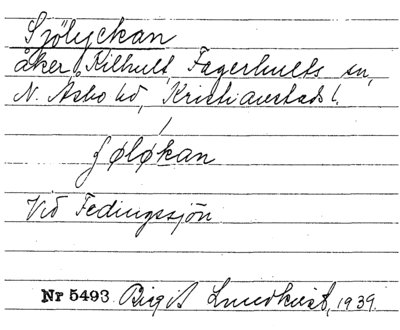 Sjölyckan
åker, Kilhult, Fagerhults sn,
N. Åsbo hd, Kristianstads l.
ʃøløkan
Vid Fedingssjön
Nr 5493 Birgit Lundkvist, 1939.